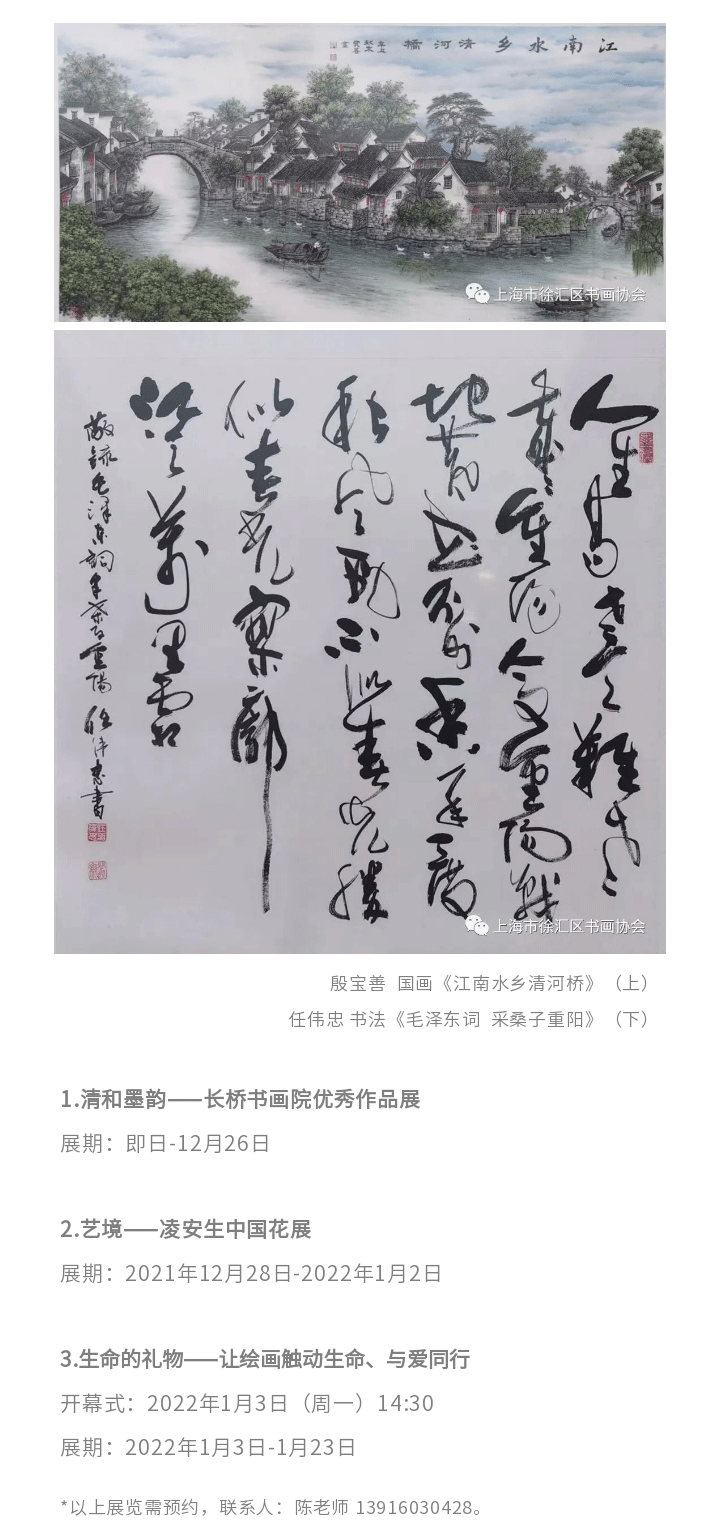 江南水乡清河橋
上海市徐汇区书画协会
人生易老天難老
歲歲重阳今又重阳战
地黄花分外香一年一度
秋风劲不似春光勝
似春光寥廓
江天萬里霜
敬録毛泽东詞采桑子重陽 任伟忠書
上海市徐汇区书画协会
殷宝善 国画《江南水乡清河桥》（上）
任伟忠 书法《毛泽东词 采桑子重阳》（下）
1.清和墨韵——长桥书画院优秀作品展
展期：即日-12月26日
2.艺境——凌安生中国花展
展期：2021年12月28日-2022年1月2日
3.生命的礼物——让绘画触动生命、与爱同行
开幕式：2022年1月3日（周一）14:30
展期：2022年1月3日-1月23日
*以上展览需预约，联系人：陈老师 13916030428。